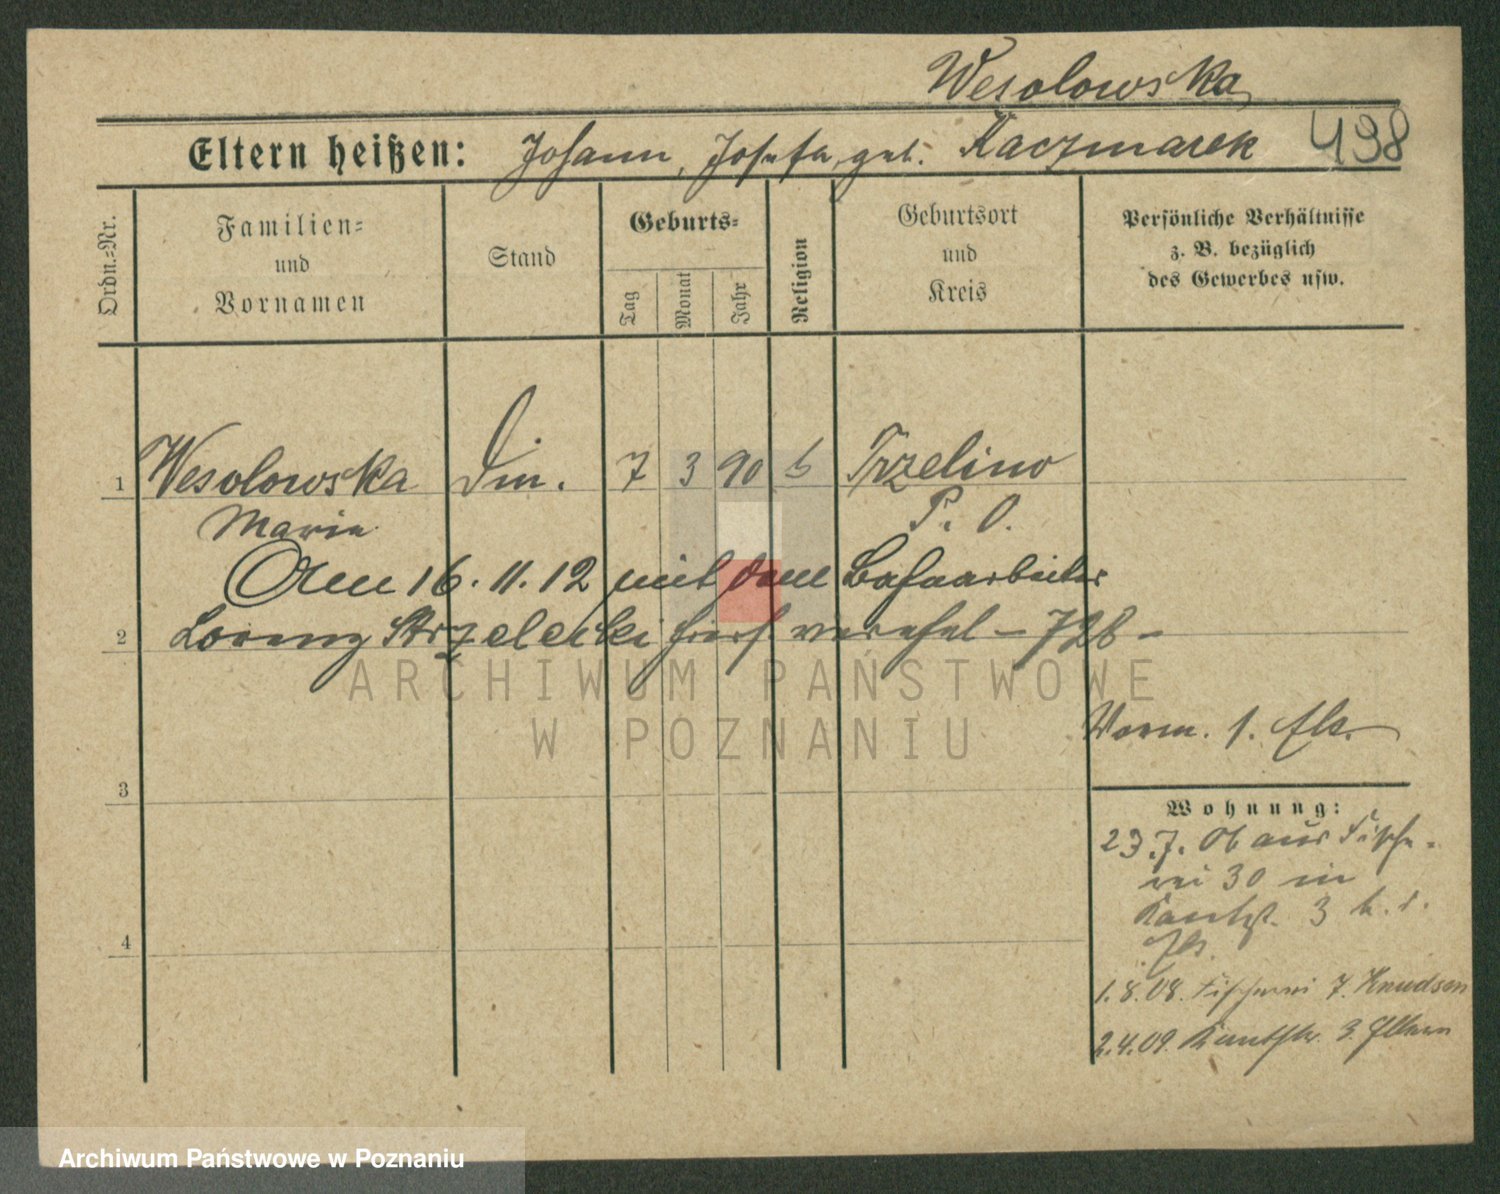 Wesolowska
Eltern heißen: Johann, Josefa, geb. Kaczmarek 498
Ordn.-Nr.
Familien- und Vornamen
Stand
Geburts-
Tag Monat Jahr
Religion
Geburtsort und Kreis
Persönliche Verhältnisse z. B. bezüglich des Gewerbes usw.
1 Wesolowska Din. 7 3 90 Trzelino
Marie P. O.
Am 16. 11. 12 mit dem Bahnarbeiter
2 Lorenz Strzelecki hier verehel – 728 –
Vorm. 1. Els.
3
Wohnung:
23.7.06 aus Fische-
rei 30 in
Kantst. 3 b. d.
Els.
4
1.8.08. Fischerei 7. Knudsen
2.4.09. Kantstr. 3. Eltern
ARCHIWUM PAŃSTWOWE
W POZNANIU
Archiwum Państwowe w Poznaniu